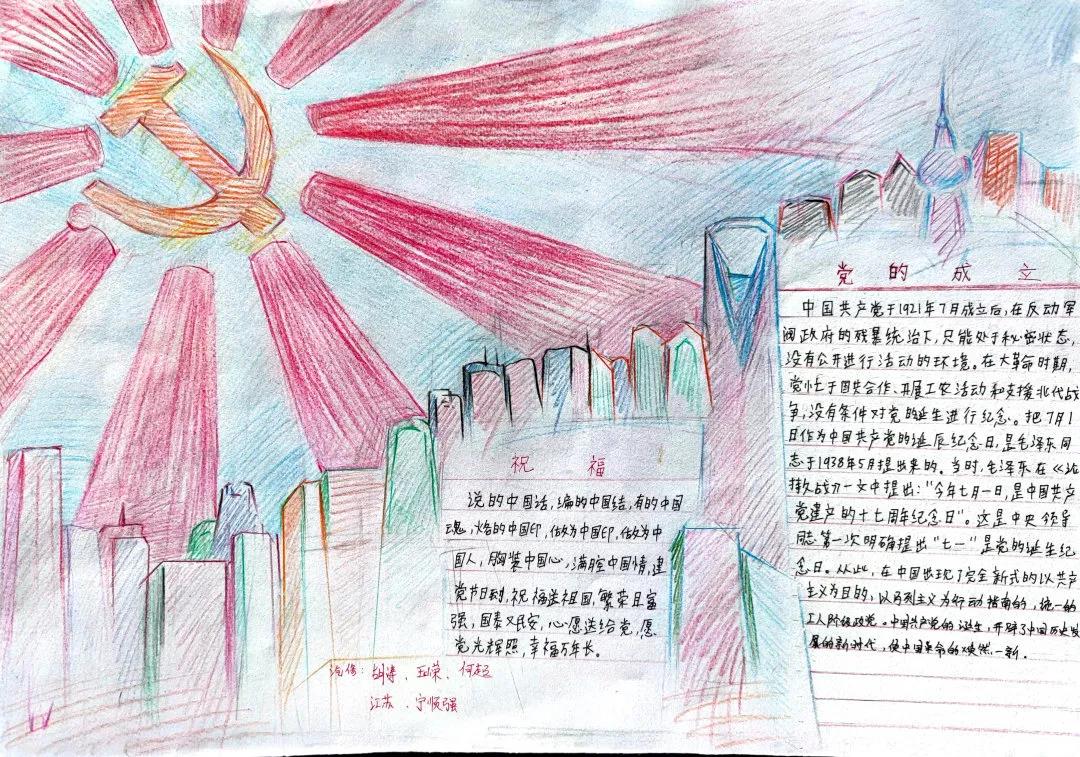 党的成立
中国共产党于1921年7月成立后,在反动军
阀政府的残暴统治下,只能处于秘密状态,
没有公开进行活动的环境。在大革命时期,
党忙于国共合作、开展工农活动和支援北伐战
争,没有条件对党的诞生进行纪念。把7月1
日作为中国共产党的诞辰纪念日,是毛泽东同
志于1938年5月提出来的。当时,毛泽东在《
战》一文中提出:"今年七月一日,是中国共产
党建立的十七周年纪念日"。这是中央领导
同志第一次明确提出"七一"是党的诞生纪
念日。从此,在中国出现了完全新式的以共产
主义为目的,以马列主义为行动指南的,统一的
工人阶级政党。中国共产党的诞生,开辟了中国历史发
展的新时代,使中国革命的焕然一新。
祝福
说的中国话,编的中国结,有的中国
魂,烙的中国印,做为中国印,做为中
国人,胸装中国心,满腔中国情,建
党节日到,祝福送祖国,繁荣且富
强,国泰又民安,心愿送给党,愿
党光辉照,幸福万年长。
胡涛、王荣、何超
江苏、宁顺强